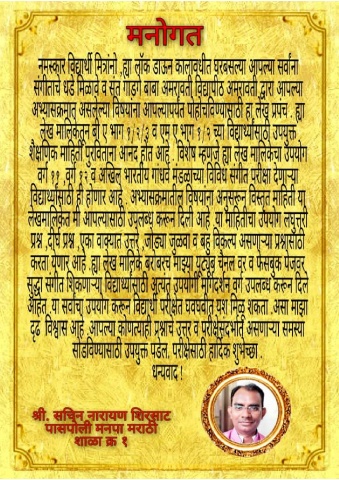 मनोगत
नमस्कार विद्यार्थी मित्रांनो ,ह्या लॉक डाऊन कालावधीत घरबसल्या आपल्या सर्वांना
संगीताचे धडे मिळावे व संत गाडगे बाबा अमरावती विद्यापीठ अमरावती द्वारा आपल्या
अभ्यासक्रमात असलेल्या विषयांना आपल्यापर्यंत पोहोचविण्यासाठी हा लेख प्रपंच . ह्या
लेख मालिकेतून बी ए भाग १/२/३ व एम ए भाग १/२ च्या विद्यार्थ्यांसाठी उपयुक्त
शैक्षणिक माहिती पुरविताना आनंद होत आहे . विशेष म्हणजे ह्या लेख मालिकेचा उपयोग
वर्ग ११ ,वर्ग १२ व अखिल भारतीय गांधर्व मंडळाच्या विविध संगीत परीक्षा देणाऱ्या
विद्यार्थ्यांसाठी ही होणार आहे . अभ्यासक्रमातील विषयांना अनुसरून विस्तृत माहिती या
लेखमालिकेत मी आपल्यासाठी उपलब्ध करून दिली आहे .या माहितीचा उपयोग लघुत्तरी
प्रश्न ,दीर्घ प्रश्न ,एका वाक्यात उत्तरे, जोड्या जुळवा व बहु विकल्प असणाऱ्या प्रश्नांसाठी
करता येणार आहे .ह्या लेख मालिके बरोबरच माझ्या युट्युब चॅनल वर व फेसबुक पेजवर
सुद्धा संगीत शिकणाऱ्या विद्यार्थ्यांसाठी अत्यंत उपयोगी मार्गदर्शन वर्ग उपलब्ध करून दिले
आहेत .या सर्वांचा उपयोग करून विद्यार्थी परीक्षेत घवघवीत यश मिळू शकता .असा माझा
दृढ विश्वास आहे .आपल्या कोणत्याही प्रश्नाचे उत्तर व परीक्षेसंदर्भात असणाऱ्या समस्या
सोडविण्यासाठी उपयुक्त पडेल. परीक्षेसाठी हार्दिक शुभेच्छा .
धन्यवाद !
श्री. सचिन नारायण शिरसाट
पासपोली मनपा मराठी
शाळा क्र १